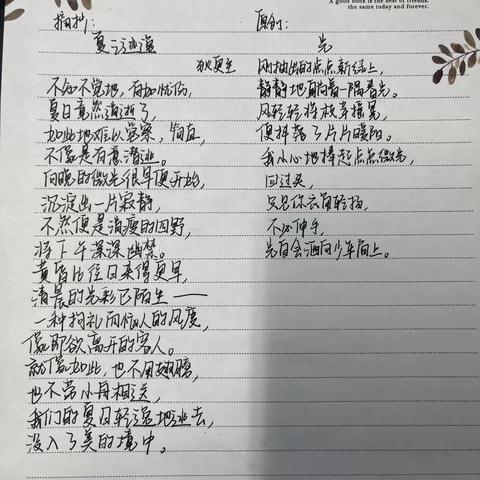 A good book is the best of friends,
the same today and forever.
摘抄：
夏之逃逸
狄更生
不知不觉地，有如忧伤，
夏日竟然消逝了，
如此地难以觉察，简直，
不像是有意潜逃。
向晚的微光很早便开始，
沉淀出一片寂静，
不然便是消瘦的四野，
将下午深深幽禁。
黄昏比往日来得更早，
清晨的光彩已陌生——
一种拘礼而恼人的风度，
像即欲离开的客人。
就像如此，也不用翅膀，
也不劳小舟相送，
我们的夏日轻逸地逃去，
没入了美的境中。
原创：
光
刚抽出的点点新绿上，
静静地睡着一隅春光。
风轻轻将枝芽摇晃，
便抖落了片片暖阳。
我小心地捧起点点微光，
回过头，
只见你六角轻扬，
不必伸手，
光自会洒向少年肩上。